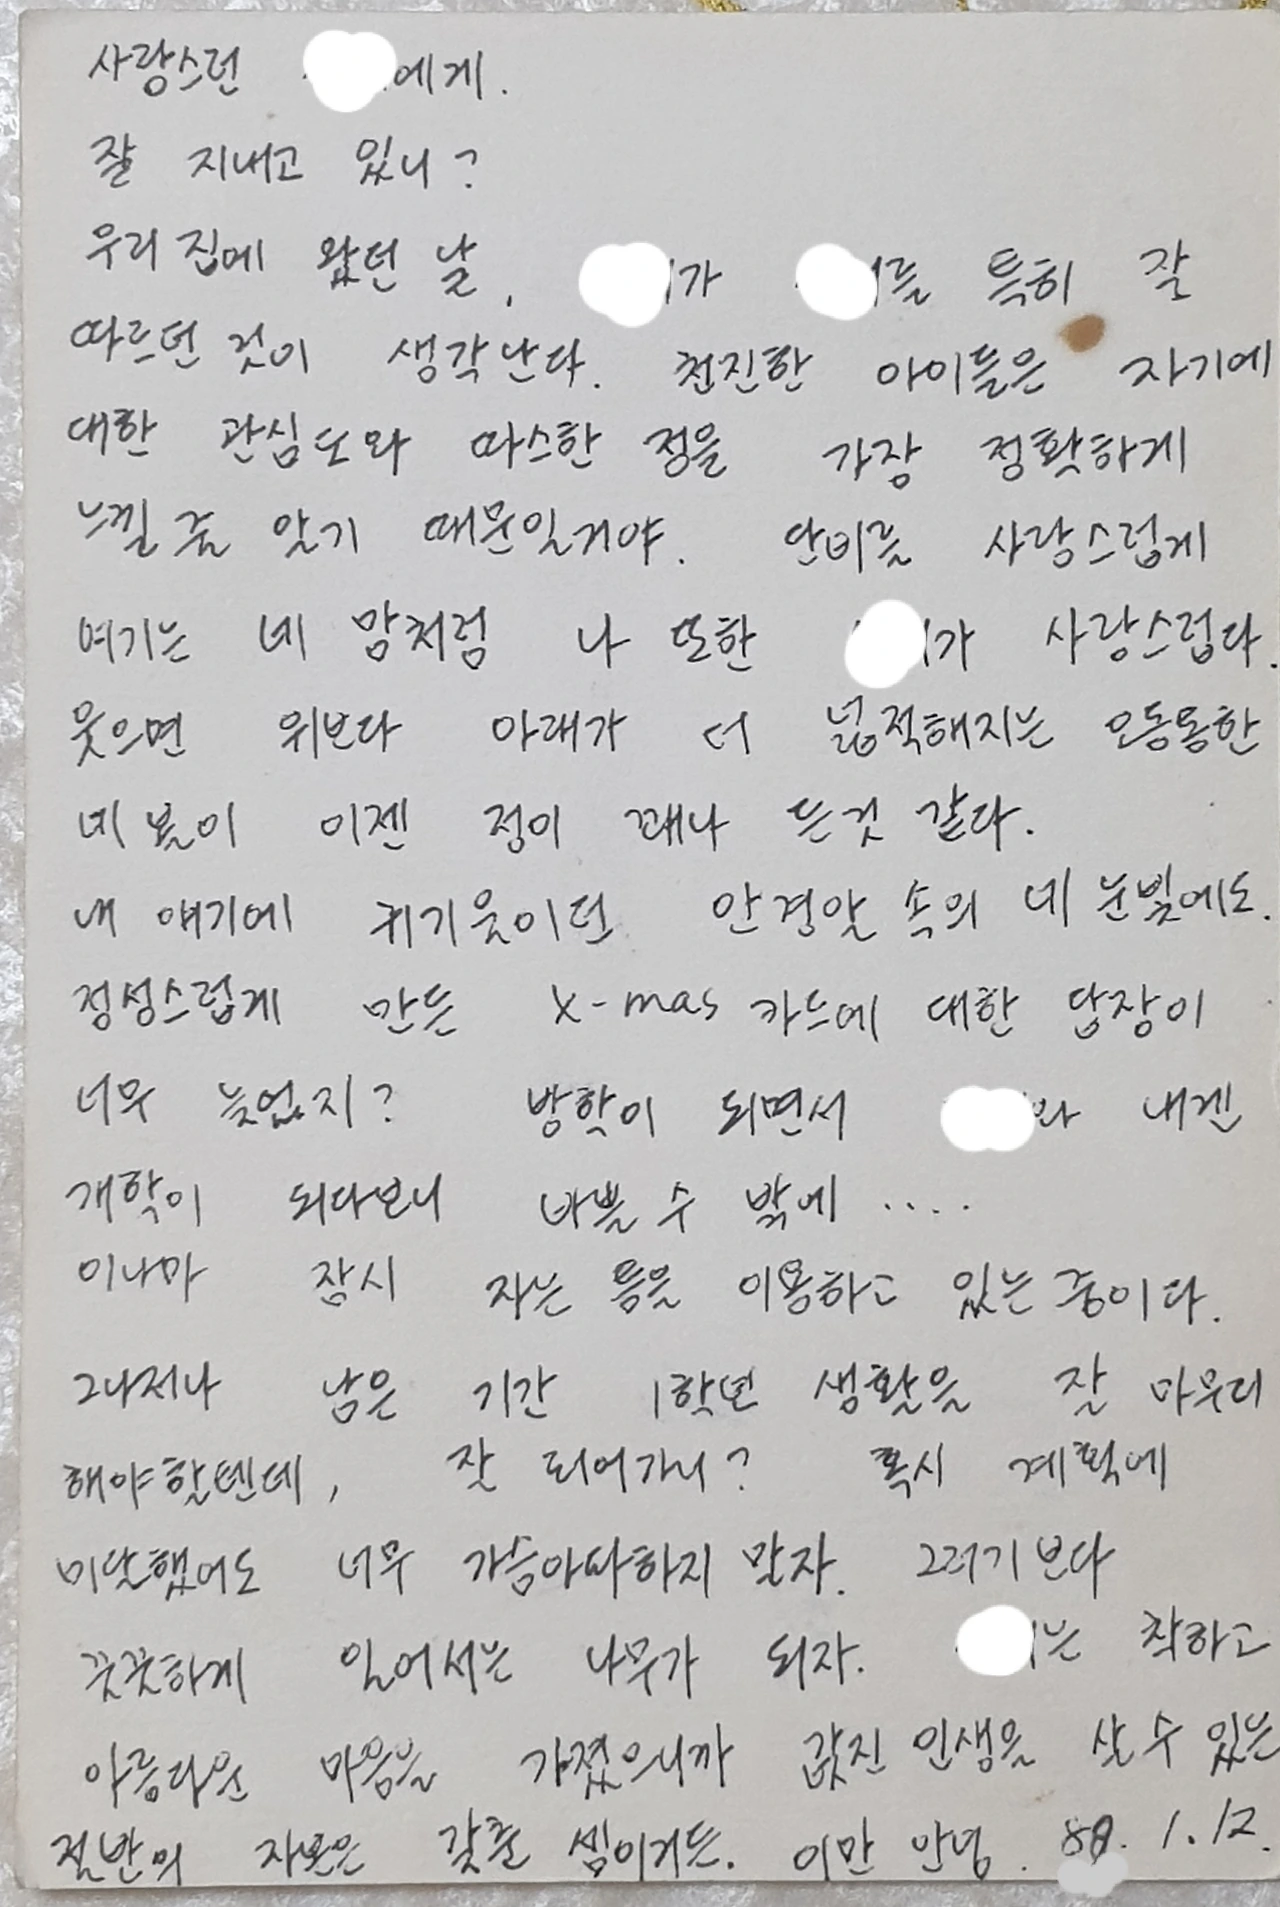 사랑스런 에게.
잘 지내고 있니?
우리 집에 왔던 날, 가 를 특히 잘
따르던 것이 생각난다. 천진한 아이들은 자기에
대한 관심도와 따스한 정을 가장 정확하게
느낄 줄 알기 때문일거야. 단비를 사랑스럽게
여기는 네 맘처럼 나 또한 가 사랑스럽다.
웃으면 위보다 아래가 더 넓적해지는 오동통한
네 볼이 이젠 정이 꽤나 든것 같다.
내 얘기에 귀기울이던 안경알 속의 네 눈빛에도.
정성스럽게 만든 X-mas 카드에 대한 답장이
너무 늦었지? 방학이 되면서 와 내겐
개학이 되다보니 바쁠 수 밖에 ....
이나마 잠시 자는 틈을 이용하고 있는 중이다.
그나저나 남은 기간 1학년 생활을 잘 마무리
해야할텐데, 잘 되어가니? 혹시 계획에
미달했어도 너무 가슴아파하지 말자. 그러기 보다
꿋꿋하게 일어서는 나무가 되자. 는 착하고
아름다운 마음을 가졌으니까 값진 인생을 살 수 있는
절반의 자본은 갖춘 셈이거든. 이만 안녕. 1.12.